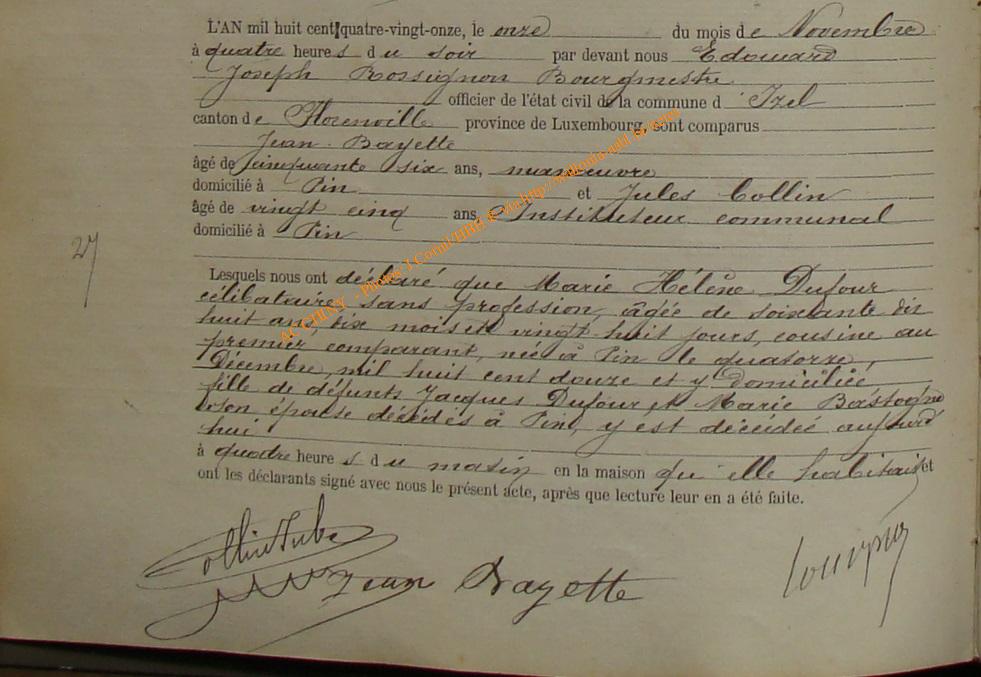 L'AN mil huit cent quatre-vingt-onze, le onze du mois de Novembre
à quatre heures du soir par devant nous Edouard
Joseph Rossignon Bourgmestre
officier de l'état civil de la commune d'Izel
canton de Florenville province de Luxembourg, sont comparus
Jean Bayette
âgé de cinquante six ans, manœuvre
domicilié à Pin et Jules Collin
âgé de vingt cinq ans, Instituteur communal
domicilié à Pin
27
Lesquels nous ont déclaré que Marie Hélène Dufour
célibataire, sans profession, âgée de soixante dix
huit ans, dix mois et vingt huit jours, cousine au
premier comparant, née à Pin le quatorze
Décembre, mil huit cent douze et y domiciliée
fille de défunts Jacques Dufour, et Marie Bastogne
son épouse décédés à Pin, y est décédée aujourd'
hui
à quatre heures du matin en la maison qu'elle habitait et
ont les déclarants signé avec nous le présent acte, après que lecture leur en a été faite.
Collin Jules
Jean Bayette
ACCHINY - Photos J.Cornil/HBH